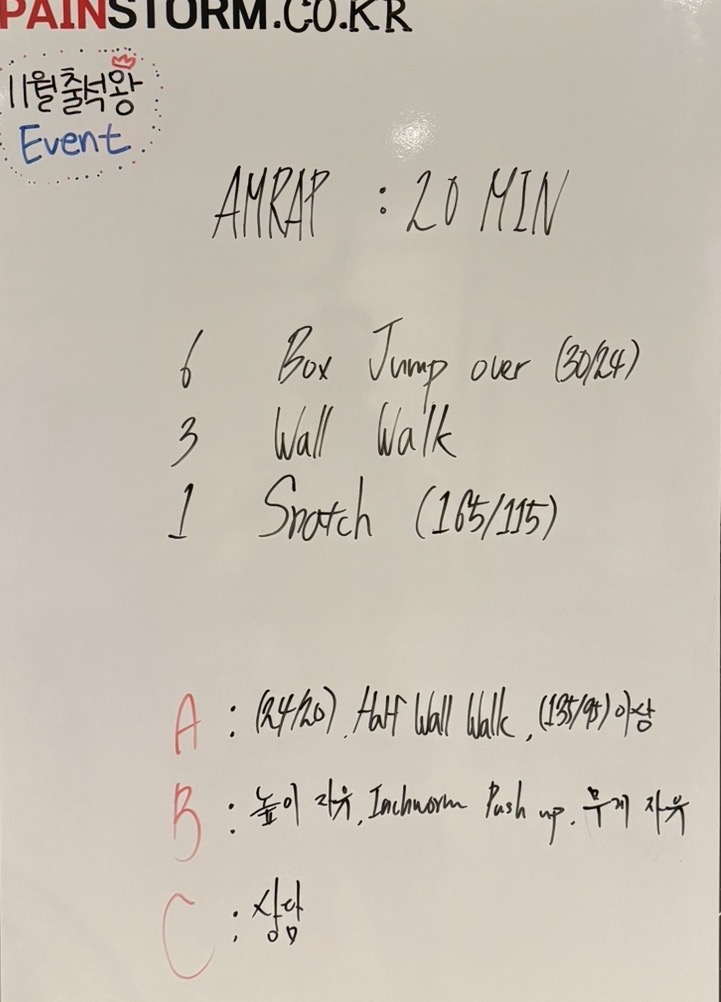 PAINSTORM.CO.KR
11월 출석왕
Event
AMRAP : 20 MIN
6 Box Jump over (30/24)
3 Wall Walk
1 Snatch (165/115)
A : (24/20), Half Wall Walk, (135/95) 이상
B : 높이 자유, Inchworm Push up, 무게 자유
C : 상담